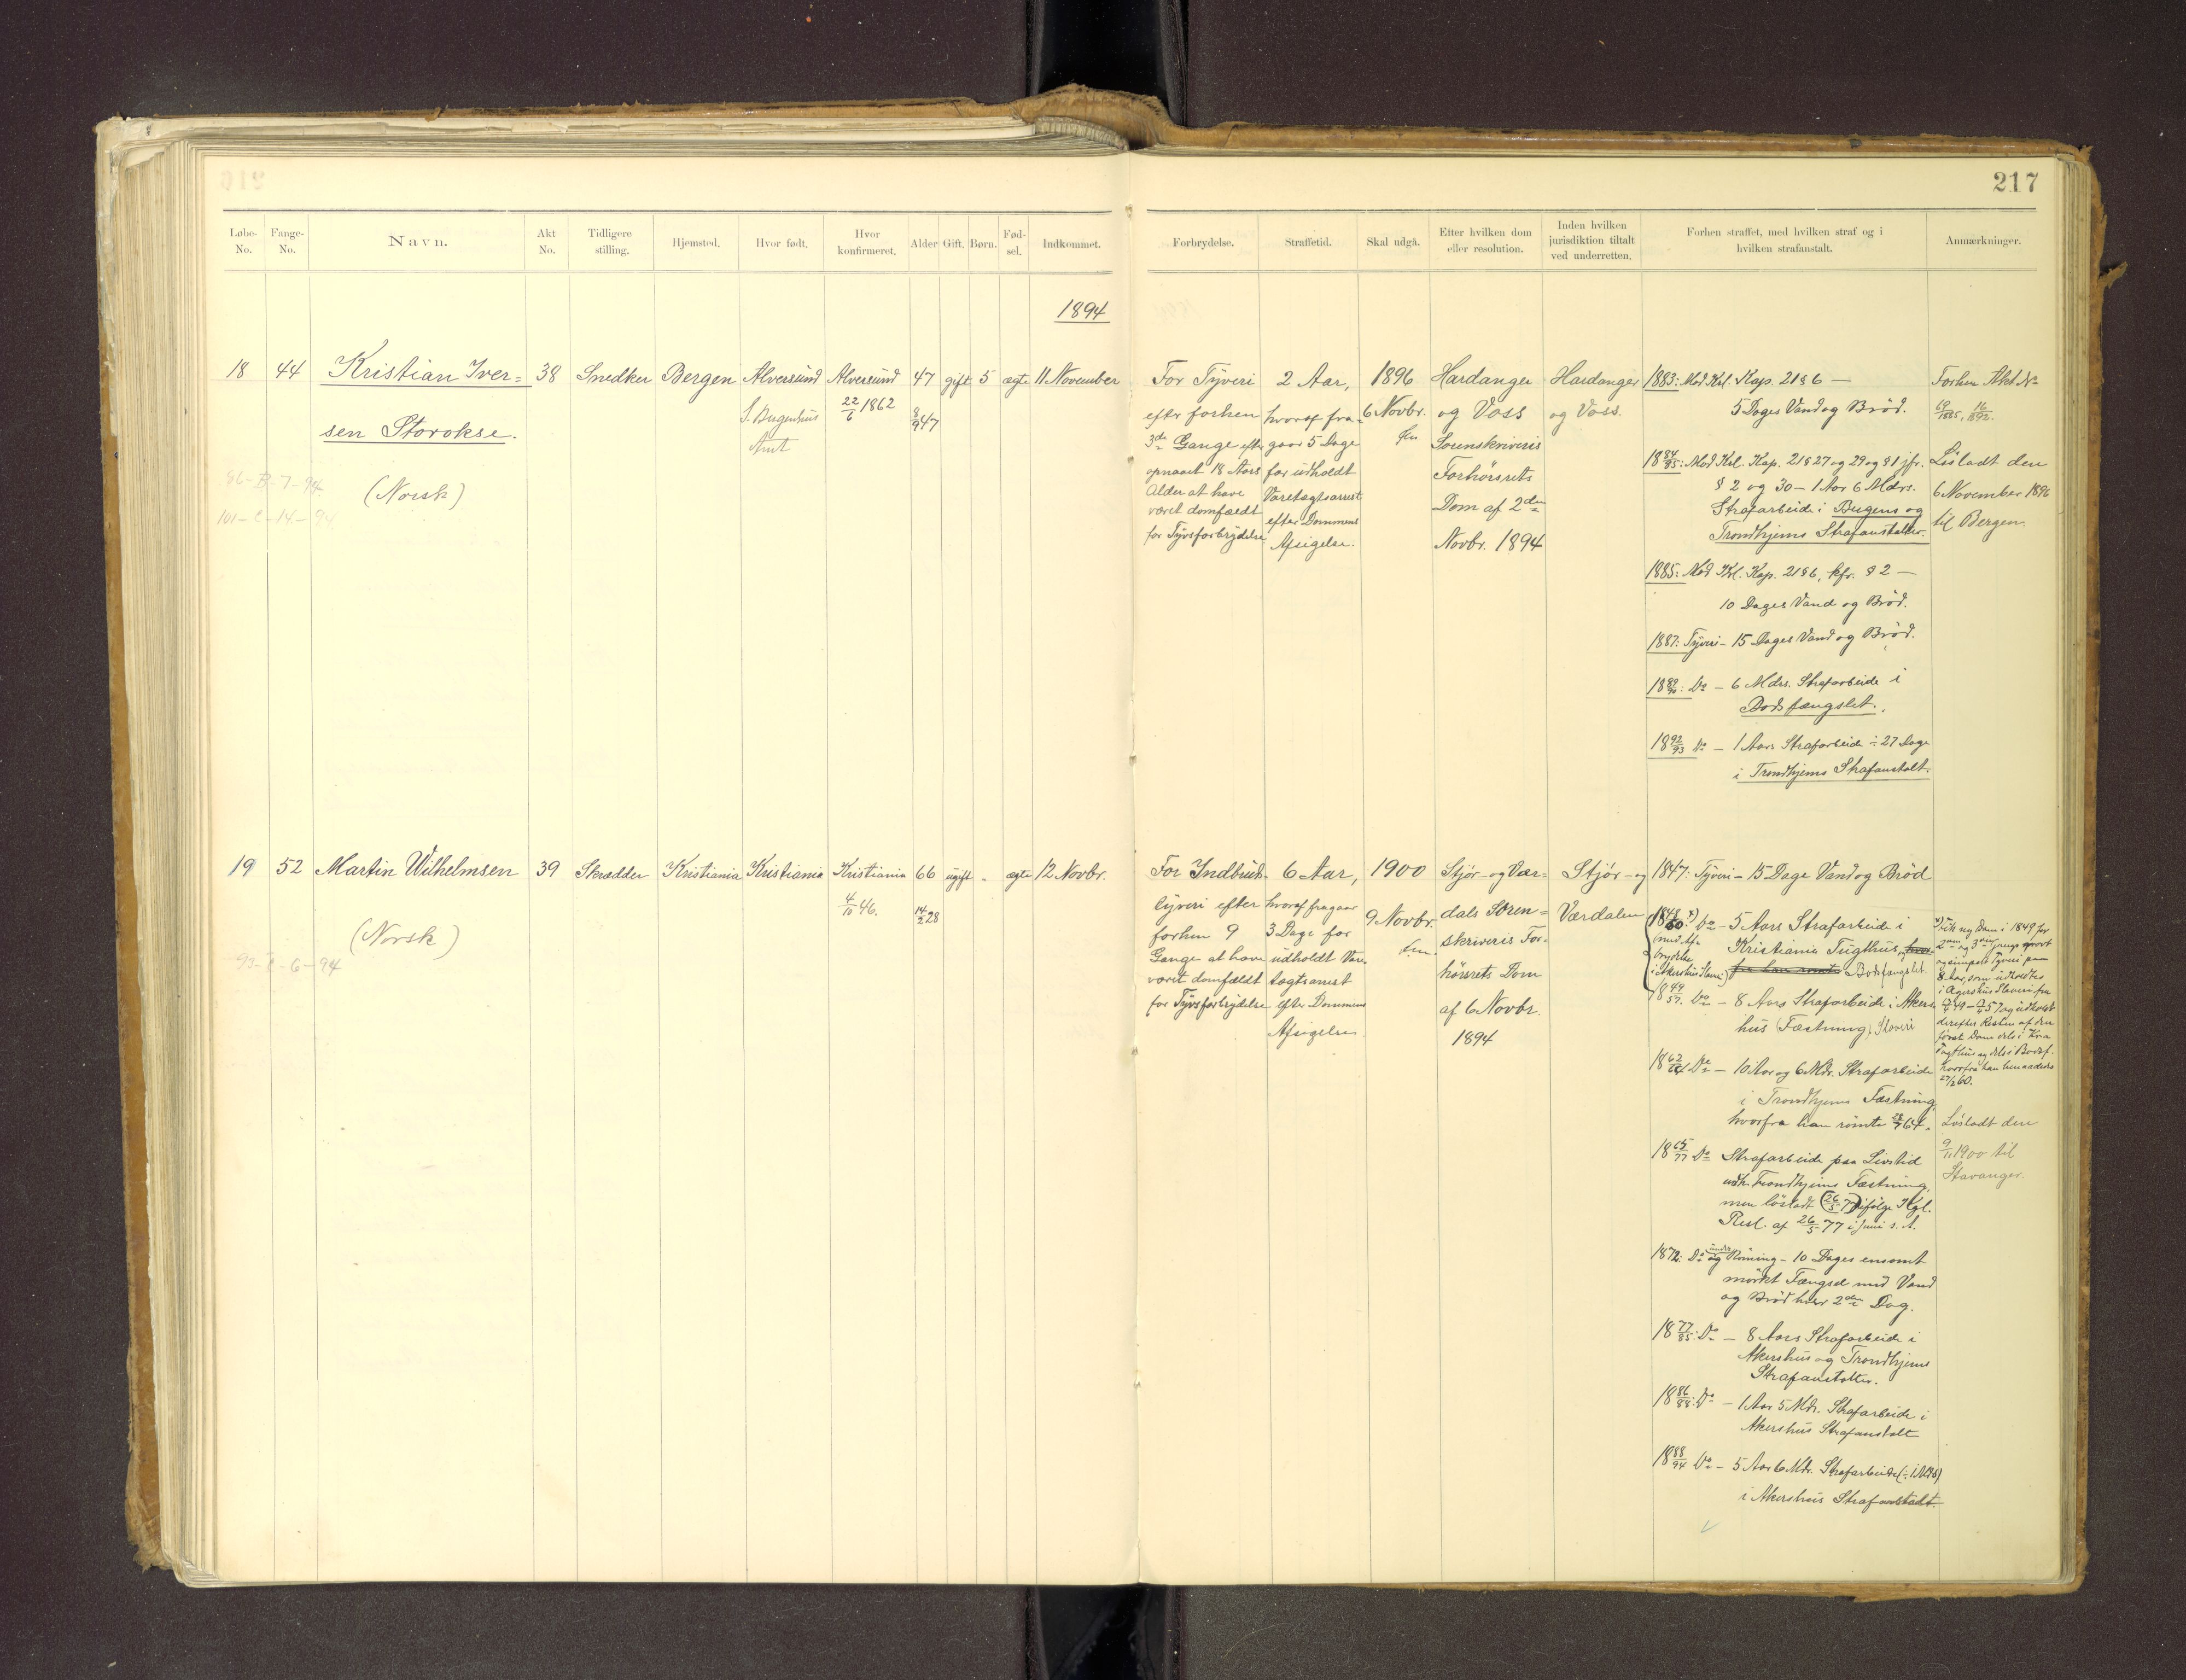 217
Løbe-No.
Fange-No.
Navn.
Akt No.
Tidligere stilling.
Hjemsted.
Hvor født.
Hvor konfirmeret.
Alder
Gift.
Børn.
Fød-sel.
Indkommet.
Forbrydelse.
Straffetid.
Skal udgå.
Efter hvilken dom eller resolution.
Inden hvilken jurisdiktion tiltalt ved underretten.
Forhen straffet, med hvilken straf og i hvilken strafanstalt.
Anmærkninger.
1894
18
44
Kristian Iver=
sen Storokse.
(Norsk)
86-B-7-94
101-C-14-94
38
Snedker
Bergen
Alversund
S. Bergenhus
Amt
Alversund
22/6 1862
47
8/9 47
gift
5
ægte
11 November
For Tyveri
efter forhen
3de Gange efter
opnaaet 18 Aars
Alder at have
været domfældt
for Tyvsforbrydelse
2 Aar,
hvoraf fra-
gaar 5 Dage
for udholdt
Varetægtsarrest
efter Dommens
Afsigelse.
1896
6 Novbr.
Fm
Hardanger
og Voss
Sorenskriveris
Forhørsrets
Dom af 2den
Novbr. 1894
Hardanger
og Voss.
1883: Mod Krl. Kap. 21 § 6 —
5 Dages Vand og Brød.
18 84/85: Mod Krl. Kap. 21 § 27 og 29 og § 1 jfr.
§ 2 og 30 — 1 Aar 6 Mdrs.
Strafarbeide i Bergens og
Trondhjems Strafanstalter.
1885: Mod Krl. Kap. 21 § 6, kfr. § 2 —
10 Dages Vand og Brød.
1887: Tyveri — 15 Dages Vand og Brød.
18 89/90: Do — 6 Mdrs. Strafarbeide i
Bodsfængslet.
18 92/93 Do — 1 Aars Strafarbeide ÷ 27 Dage
i Trondhjems Strafanstalt.
Forhen Akt No
69/1885, 16/1892.
Løsladt den
6 November 1896
til Bergen.
19
52
Martin Wilhelmsen
(Norsk)
93-C-6-94
39
Skrædder
Kristiania
Kristiania
Kristiania
4/10 46.
66
14/2 28
ugift
-
ægte
12 Novbr.
For Indbruds-
tyveri efter
forhen 9
Gange at have
været domfældt
for Tyvsforbrydelse
6 Aar,
hvoraf fragaar
3 Dage for
udholdt Vare-
tægtsarrest
efter Dommens
Afsigelse.
1900
9 Novbr.
Fm.
Stjør- og Vær=
dals Soren=
skriveris For-
hørsrets Dom
af 6 Novbr.
1894
Stjør- og
Værdalen
1847: Tyveri — 15 Dage Vand og Brød
1848/60 x) Do — 5 Aars Strafarbeide i
Kristiania Tugthus,
Bodsfængslet.
(med Af-
brydelse
i Akershus Slaveri)
18 49/57. Do — 8 Aars Strafarbeide i Akers-
hus (Fæstning) Slaveri
18 62/64 Do — 10 Aar og 6 Mdr. Strafarbeide
i Trondhjems Fæstning,
hvorfra han rømte 28/7 64.
18 65/77 Do Strafarbeide paa Livstid
udh. Trondhjems Fæstning,
men løsladt (26/5 77) ifølge Kgl.
Resl. af 26/5 77 i Juni s. A.
1872: Do og under Rømning — 10 Dages ensomt
mørkt Fængsel med Vand
og Brød hver 2den Dag.
18 77/85: Do — 8 Aars Strafarbeide i
Akershus og Trondhjems
Strafanstalter.
18 86/88: Do — 1 Aar 5 Mdr. Strafarbeide i
Akershus Strafanstalt
18 88/94 Do — 5 Aar 6 Mdr. Strafarbeide
i Akershus Strafanstalt.
x) Fik ny Dom i 1849 for
2den og 3die Gangs grovt
og simpelt Tyveri paa
8 Aar, som udholdtes
i Agershus Slaveri fra
49 - 57 og udholdt
derefter Resten af den
først Dom dels i Kra
Tugthus og dels i Bodsf.
hvorfra han benaadedes
27/2 60.
Løsladt den
9/11 1900 til
Stavanger.